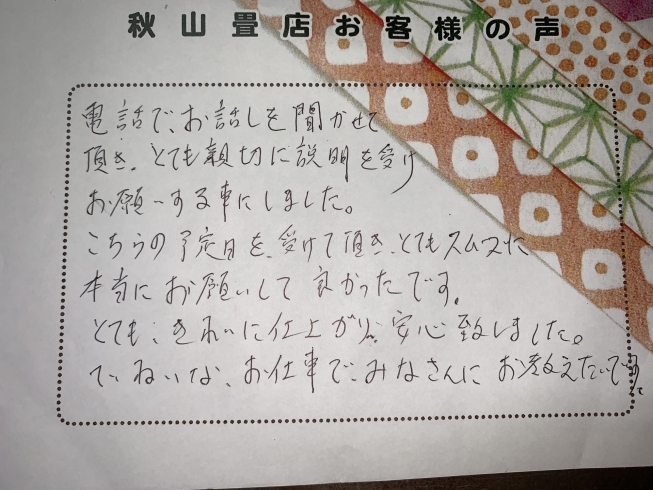 秋山畳店お客様の声
電話で、お話しを聞かせて
頂き、とても親切に説明を受け
お願いする事にしました。
こちらの予定日を、受けて頂き、とてもスムーズに
本当にお願いして良かったです。
とても、きれいに仕上がり、安心致しました。
ていねいな、お仕事で、みなさんに お教えたいです